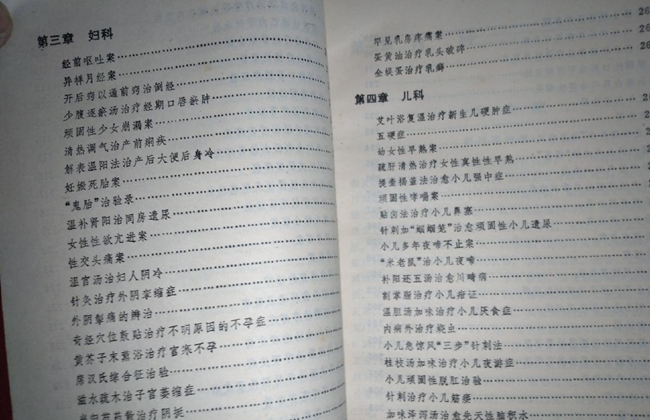 第三章 妇科
经前呕吐案
异样月经案
开后窍以通前窍治倒经
少腹逐瘀汤治疗经期口唇瘀肿
顽固性少女崩漏案
清热调气治产前痢疾
解表温阳法治产后大便后身冷
妊娠死胎案
“鬼胎”治验录
温补肾阳治同房遗尿
女性性欲亢进案
性交头痛案
温宫汤治妇人阴冷
针灸治疗外阴挛缩症
外阴掣痛的辨治
奇经穴位敷贴治疗不明原因的不孕症
黄荞子末熏浴治疗宫寒不孕
席汉氏综合征治验
滋水疏木治子宫萎缩症
罕见乳房疼痛案
蛋黄油治疗乳头破碎
全蝎蛋治疗乳癖
第四章 儿科
艾叶浴复温治疗新生儿硬肿症
五硬症
幼女性早熟案
疏肝清热治疗女性真性性早熟
提壶揭盖法治愈小儿强中症
顽固性哮喘案
贴囟法治疗小儿鼻塞
针刺加“蝈蝈笼”治愈顽固性小儿遗尿
小儿多年夜啼不止案
“米老鼠”治小儿夜啼
补阳还五汤治愈川崎病
割掌脂治疗小儿疳证
温胆汤加味治疗小儿厌食症
内病外治疗烧虫
小儿急惊风“三步”针刺法
桂枝汤加味治疗小儿夜游症
小儿顽固性脱肛治验
针刺治疗小儿筋痿
加味泽泻汤治愈先天性脑积水